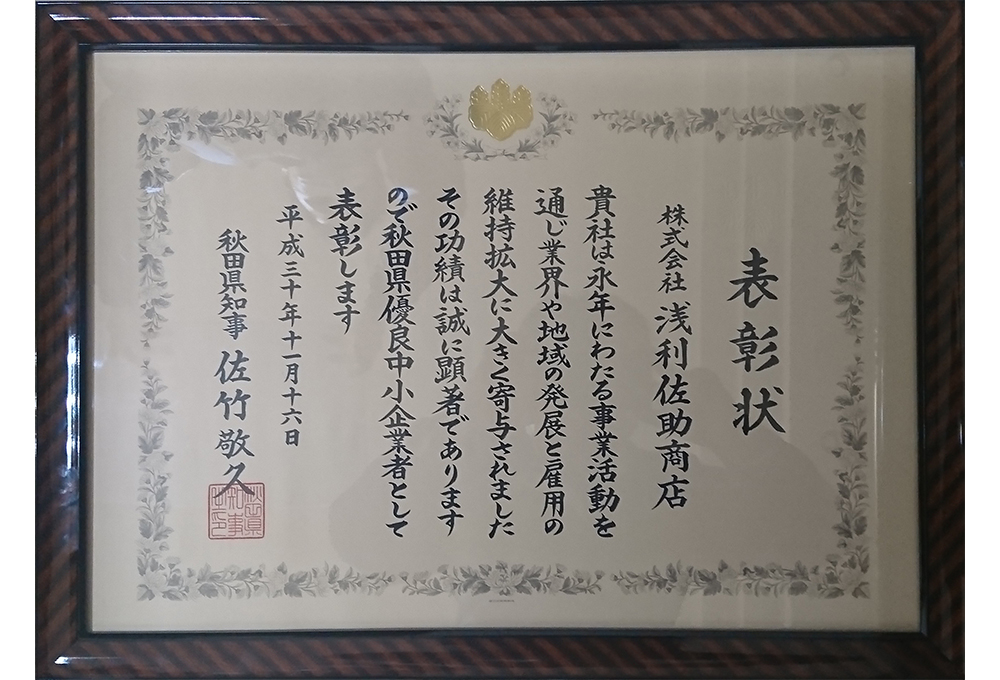 表彰状
株式会社 浅利佐助商店
貴社は永年にわたる事業活動を
通じ業界や地域の発展と雇用の
維持拡大に大きく寄与されました
その功績は誠に顕著であります
ので秋田県優良中小企業者として
表彰します
平成三十年十一月十六日
秋田県知事 佐竹敬久
秋田県
知事
之印